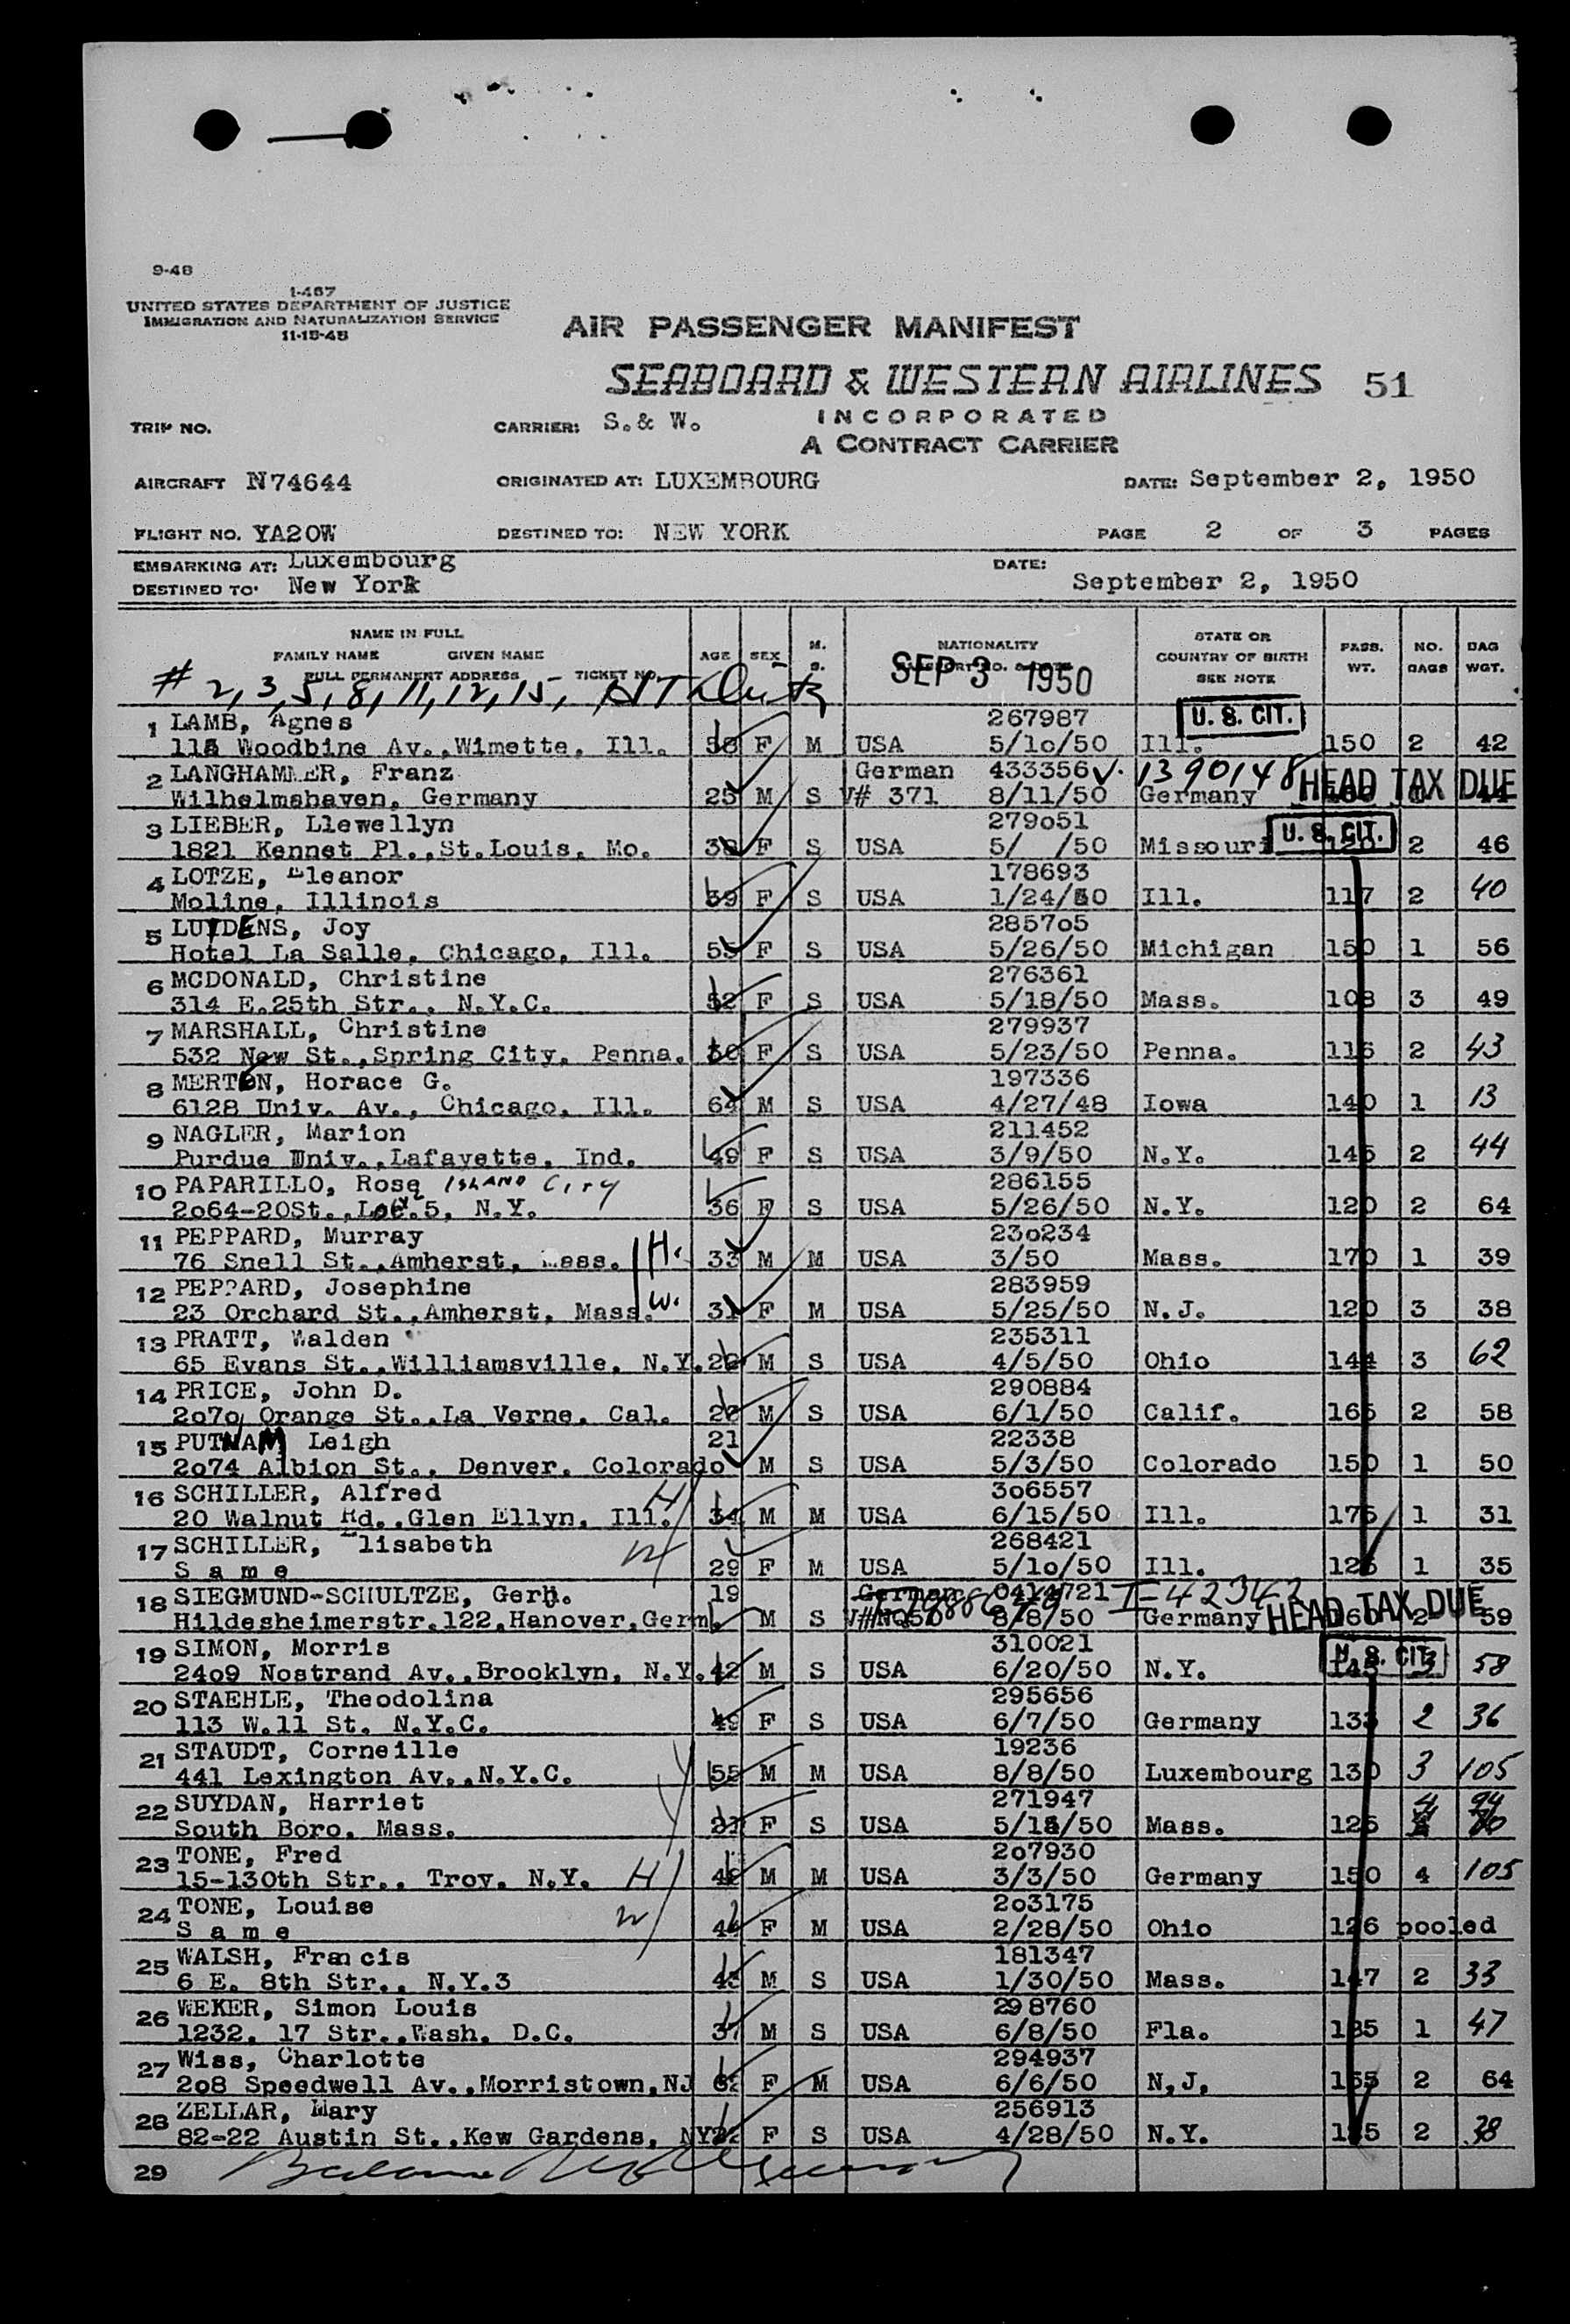 9-48
I-467
UNITED STATES DEPARTMENT OF JUSTICE
IMMIGRATION AND NATURALIZATION SERVICE
11-15-48
AIR PASSENGER MANIFEST
SEABOARD & WESTERN AIRLINES 51
INCORPORATED
A CONTRACT CARRIER
TRIP NO. CARRIER: S. & W.
AIRCRAFT N74644 ORIGINATED AT: LUXEMBOURG DATE: September 2, 1950
FLIGHT NO. YA20W DESTINED TO: NEW YORK PAGE 2 OF 3 PAGES
EMBARKING AT: Luxembourg DATE:
DESTINED TO: New York September 2, 1950
NAME IN FULL M. NATIONALITY STATE OR PASS. NO. BAG
FAMILY NAME GIVEN NAME AGE SEX S. COUNTRY OF BIRTH WT. BAGS WGT.
FULL PERMANENT ADDRESS TICKET NO. SEP 3 1950 SEE NOTE
# 2, 3, 5, 8, 11, 12, 15,
1 LAMB, Agnes 267987 U. S. CIT.
Woodbine Av.,Wimette, Ill. F M USA 5/10/50 Ill. 150 2 42
2 LANGHAMMER, Franz German 433356 1390148 HEAD TAX DUE
Wilhelmshaven, Germany 25 M S V# 371 8/11/50 Germany
3 LIEBER, Llewellyn 279051 U. S. CIT.
1821 Kennet Pl.,St.Louis, Mo. 38 F S USA 5/ /50 Missouri 2 46
4 LOTZE, Eleanor 178693
Moline, Illinois 39 F S USA 1/24/50 Ill. 117 2 40
5 LUIDENS, Joy 285705
Hotel La Salle, Chicago, Ill. 55 F S USA 5/26/50 Michigan 150 1 56
6 MCDONALD, Christine 276361
314 E.25th Str., N.Y.C. 52 F S USA 5/18/50 Mass. 108 3 49
7 MARSHALL, Christine 279937
532 New St.,Spring City, Penna. 30 F S USA 5/23/50 Penna. 116 2 43
8 MERTON, Horace G. 197336
6128 Univ. Av., Chicago, Ill. 64 M S USA 4/27/48 Iowa 140 1 13
9 NAGLER, Marion 211452
Purdue Univ.,Lafayette, Ind. 49 F S USA 3/9/50 N.Y. 145 2 44
10 PAPARILLO, Rose ISLAND City 286155
2064-20St., 5, N.Y. 36 F S USA 5/26/50 N.Y. 120 2 64
11 PEPPARD, Murray H. 230234
76 Snell St.,Amherst, Mass. 33 M M USA 3/50 Mass. 170 1 39
12 PEPPARD, Josephine W. 283959
23 Orchard St.,Amherst, Mass. 31 F M USA 5/25/50 N.J. 120 3 38
13 PRATT, Walden 235311
65 Evans St.,Williamsville, N.Y. M S USA 4/5/50 Ohio 144 3 62
14 PRICE, John D. 290884
2070 Orange St.,La Verne, Cal. M S USA 6/1/50 Calif. 165 2 58
15 PUTNAM Leigh 21 22338
2074 Albion St., Denver, Colorado M S USA 5/3/50 Colorado 150 1 50
16 SCHILLER, Alfred H 306557
20 Walnut Rd.,Glen Ellyn, Ill. 34 M M USA 6/15/50 Ill. 175 1 31
17 SCHILLER, Elisabeth W 268421
S a m e 29 F M USA 5/10/50 Ill. 125 1 35
18 SIEGMUND-SCHULTZE, Gerh. 19 German 0414721 HEAD TAX DUE
Hildesheimerstr.122,Hanover,Germ. M S 8/8/50 Germany 160 2 59
19 SIMON, Morris 310021 U. S. CIT.
2409 Nostrand Av.,Brooklyn, N.Y. 42 M S USA 6/20/50 N.Y. 145 3 58
20 STAEHLE, Theodolina 295656
113 W.11 St. N.Y.C. 49 F S USA 6/7/50 Germany 133 2 36
21 STAUDT, Corneille 19236
441 Lexington Av.,N.Y.C. 55 M M USA 8/8/50 Luxembourg 130 3 105
22 SUYDAN, Harriet 271947 4 94
South Boro, Mass. F S USA Mass. 125
23 TONE, Fred H 207930
15-130th Str., Troy, N.Y. 48 M M USA 3/3/50 Germany 150 4 105
24 TONE, Louise W 203175
S a m e 44 F M USA 2/28/50 Ohio 126 pooled
25 WALSH, Francis 181347
6 E. 8th Str., N.Y.3 43 M S USA 1/30/50 Mass. 147 2 33
26 WEKER, Simon Louis 298760
1232, 17 Str.,Wash. D.C. 37 M S USA 6/8/50 Fla. 185 1 47
27 Wiss, Charlotte 294937
208 Speedwell Av.,Morristown,NJ 62 F M USA 6/6/50 N.J. 155 2 64
28 ZELLAR, Mary 256913
82-22 Austin St.,Kew Gardens, NY F S USA 4/28/50 N.Y. 2 38
29